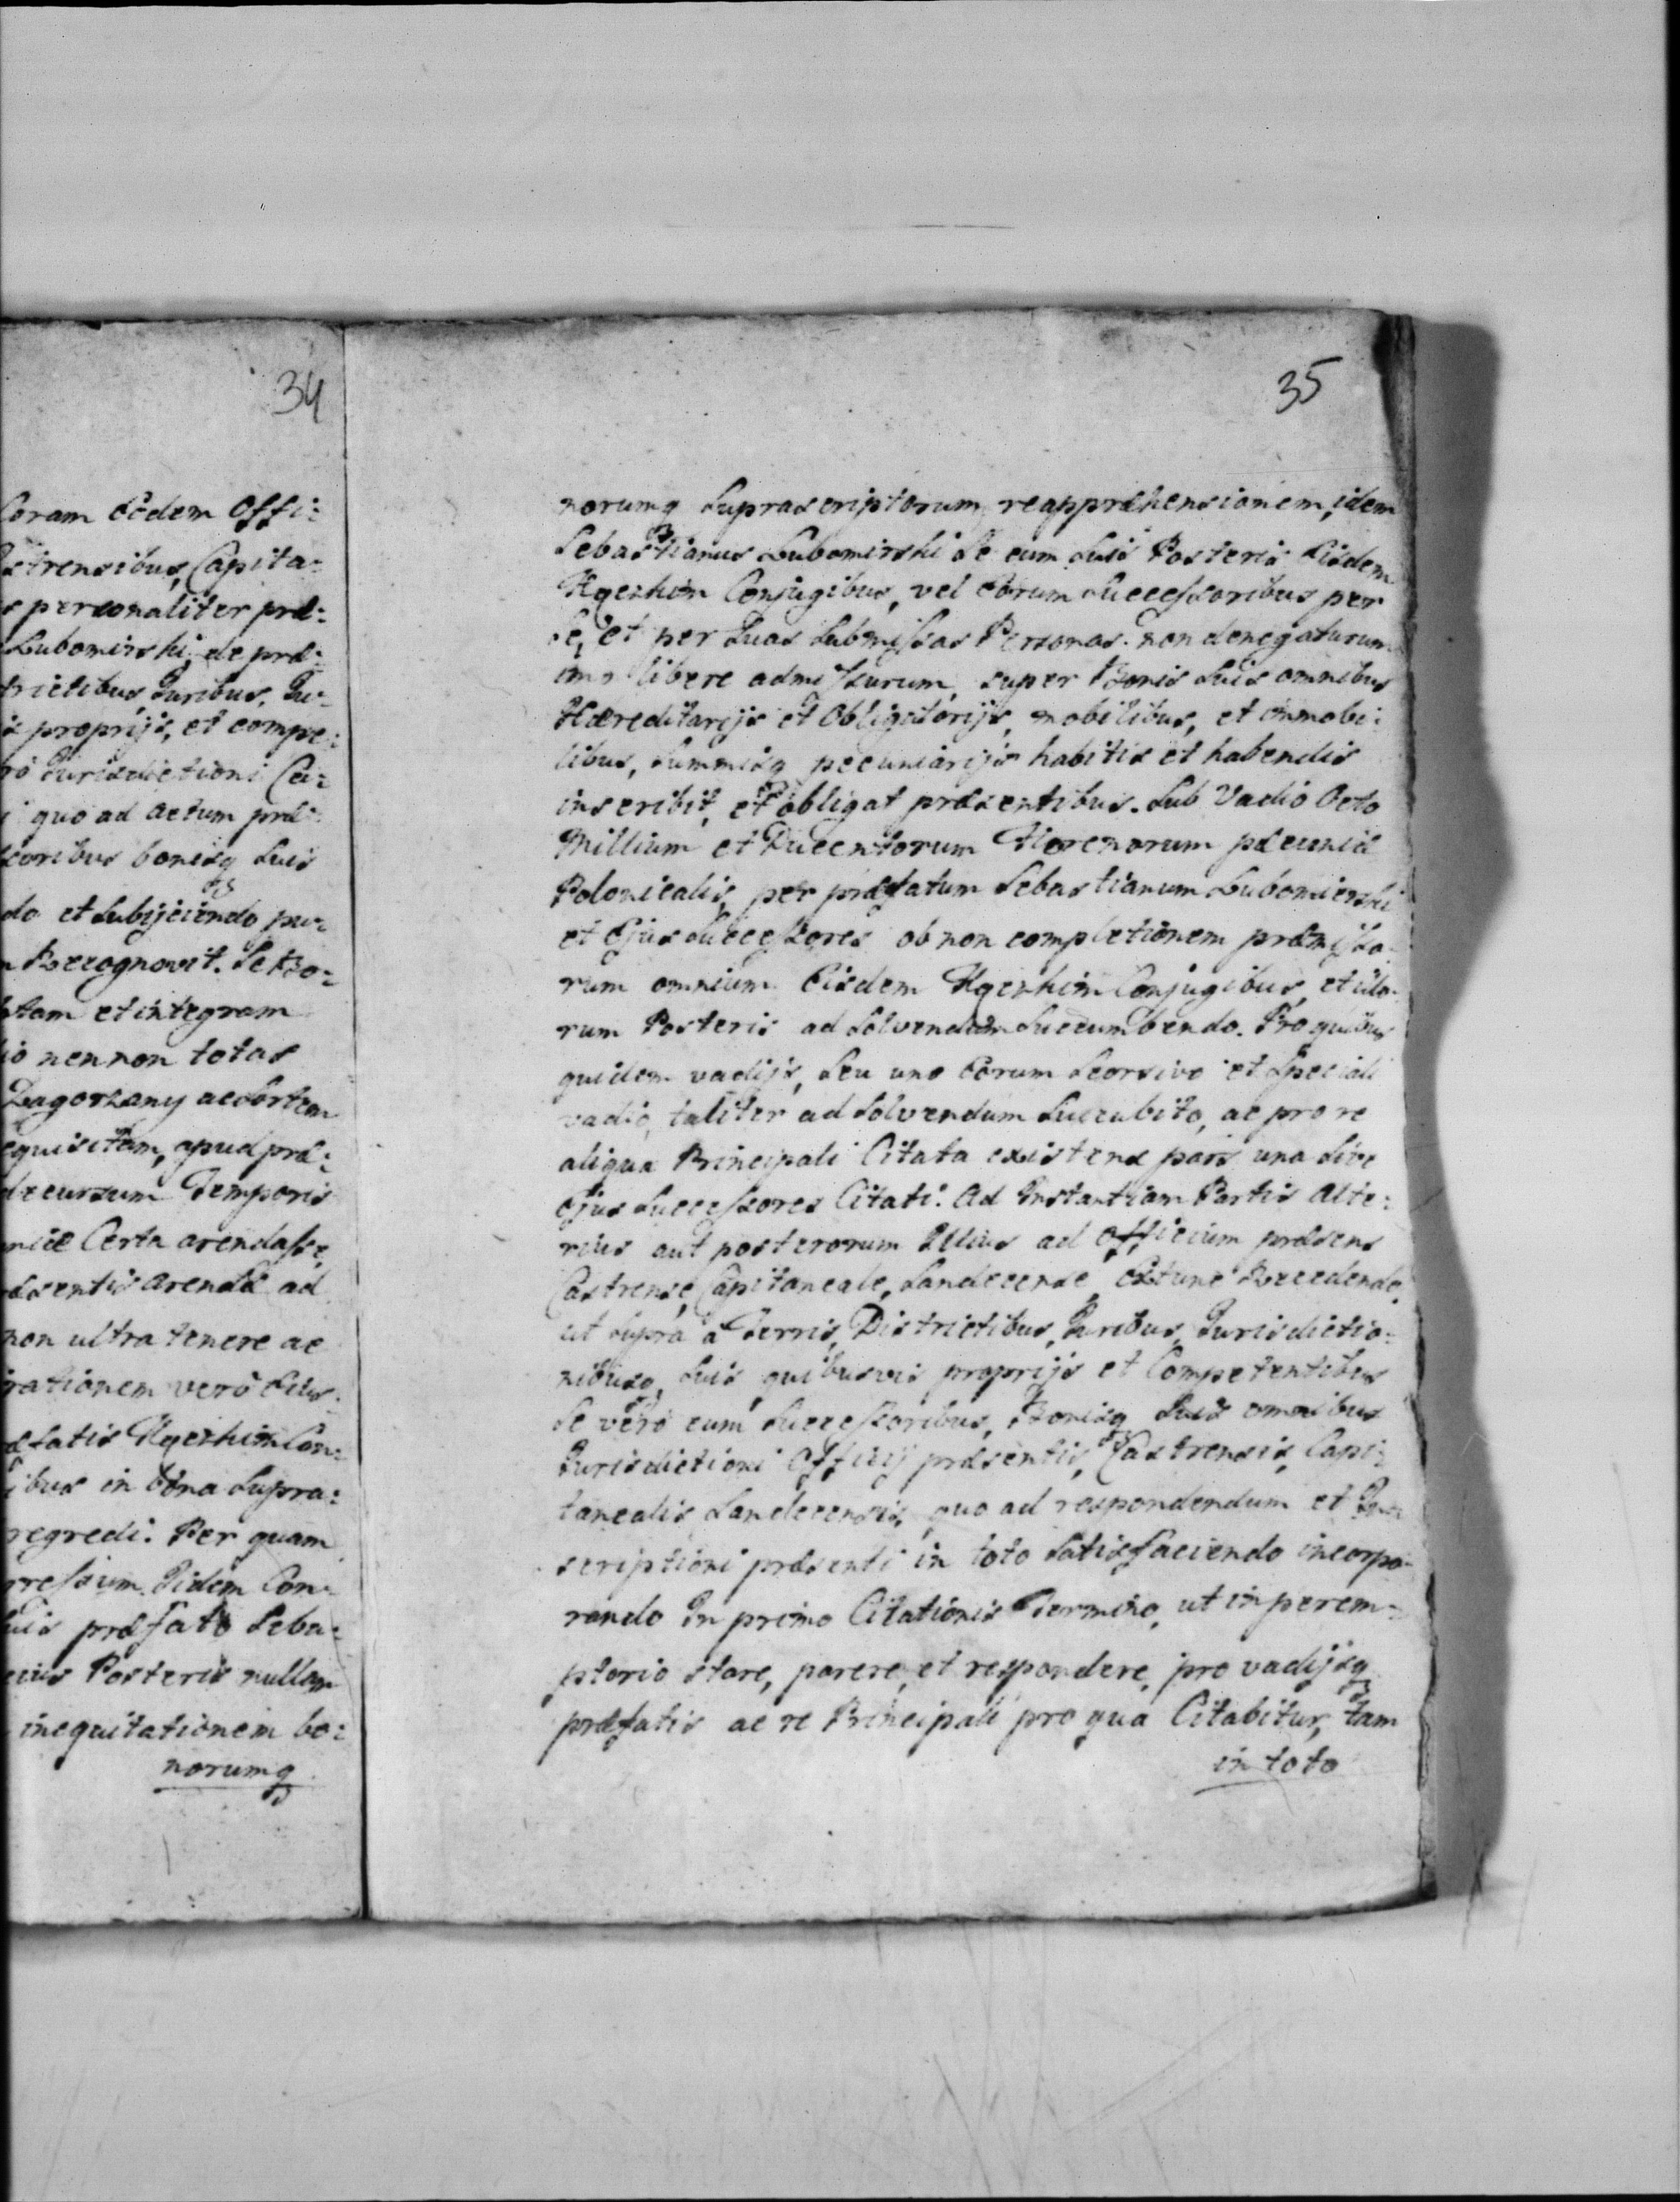 34
Coram eodem Offi:
strensibus, Capita:
s personaliter præ:
Lubomirski, de præ:
trictibus, Juribus, Ju:
s proprijs, et compe:
ro Jurisdictioni Ca:
i quo ad actum præ:
ssoribus bonisq suis
do et subijciendo pu:
m Recognovit. Se to:
tam et integram
io nennon totas
Zagorzany ac sortem
equisitam, apud præ:
decursum Temporis
niæ Certa arendasse,
æsentis arendæ ad
non ultra tenere ac
rationem vero
æfatis Con:
ibus in bona supra:
regredi. Per quam
ressum. Iidem Con:
uis præfato Seba:
eius Posteris nullam
inequitationem bo:
norumq
35
norumq suprascriptorum reapprehensionem, idem
Sebastianus Lubomirski se cum suis Posteris Eisdem
Conjugibus, vel eorum successoribus per
se, et per suas submissas Personas. non denegaturum
imo libere admissurum, super Bonis suis omnibus
Hæreditarijs et Obligatorijs, mobilibus, et immobi:
libus, summisq pecuniarijs habitis et habendis
inscribit, et obligat præsentibus. Sub Vadio Octo
Millium et Ducentorum Florenorum pecuniæ
Polonicalis, per præfatum Sebastianum Lubomierski
et Ejus successores ob non completionem præmisso:
rum omnium Eisdem Conjugibus, et illo:
rum Posteris ad solvendum succumbendo. Pro quibus
quidem vadijs, seu uno eorum seorsivo et speciali
vadio, taliter ad solvendum succubito, ac pro re
aliqua Principali Citata existens pars una sive
Ejus successores Citati. Ad Instantiam Partis Alte:
rius aut posterorum Illius ad Officium præsens
Castrense, Capitaneale, Sandecense, Extunc Recedendo,
ut supra a Terris, Districtibus, Juribus, Jurisdictio:
nibusq, suis quibusvis proprijs et Competentibus
se vero cum successoribus, Bonisq suis omnibus
Jurisdictioni Officij præsentis, Castrensis, Capi:
tanealis Sandecensis, quo ad respondendum et In:
scriptioni præsenti in toto satisfaciendo incorpo:
rando In primo Citationis Termino, ut in perem:
ptorio stare, parere, et respondere, pro vadijsq
præfatis ac re Principali pro qua Citabitur, tam
in toto